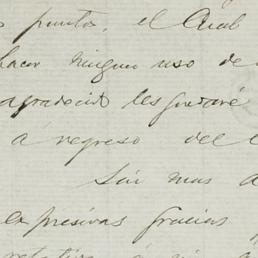 puntos, el Cual
hacer ningun uso de
agradecido les quedaré
á regreso del
Sin mas
expresivas gracias